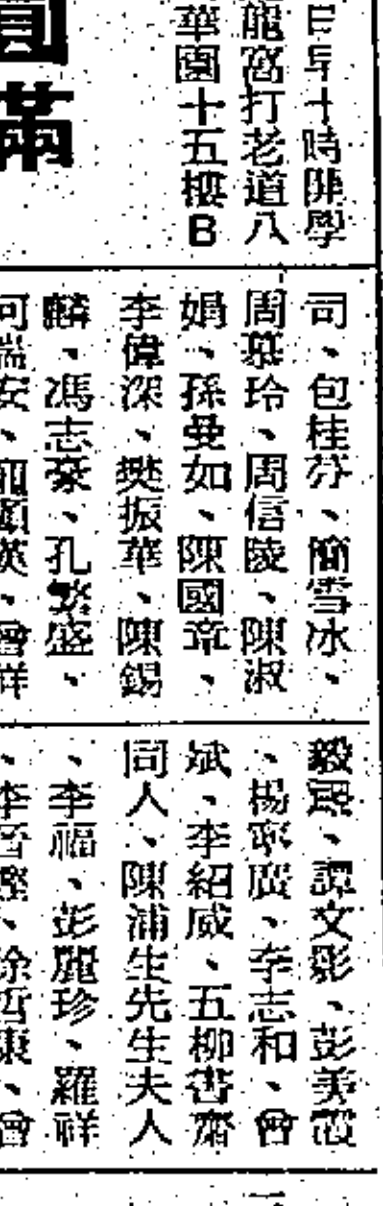 日早十時開學
龍窩打老道八
華園十五樓B
圓滿
司、包桂芬、簡雪冰、
周慕玲、周信陵、陳淑
娟、孫曼如、陳國章、
李偉深、樊振華、陳錫
麟、馮志豪、孔繁盛、
何瑞安、頌英、曾祥
毅、譚文彰、彭美霞
、楊家廣、李志和、曾
斌、李紹威、五柳書齋
同人、陳浦生先生夫人
、李福、彭麗珍、羅祥
、李晉、徐哲東、曾